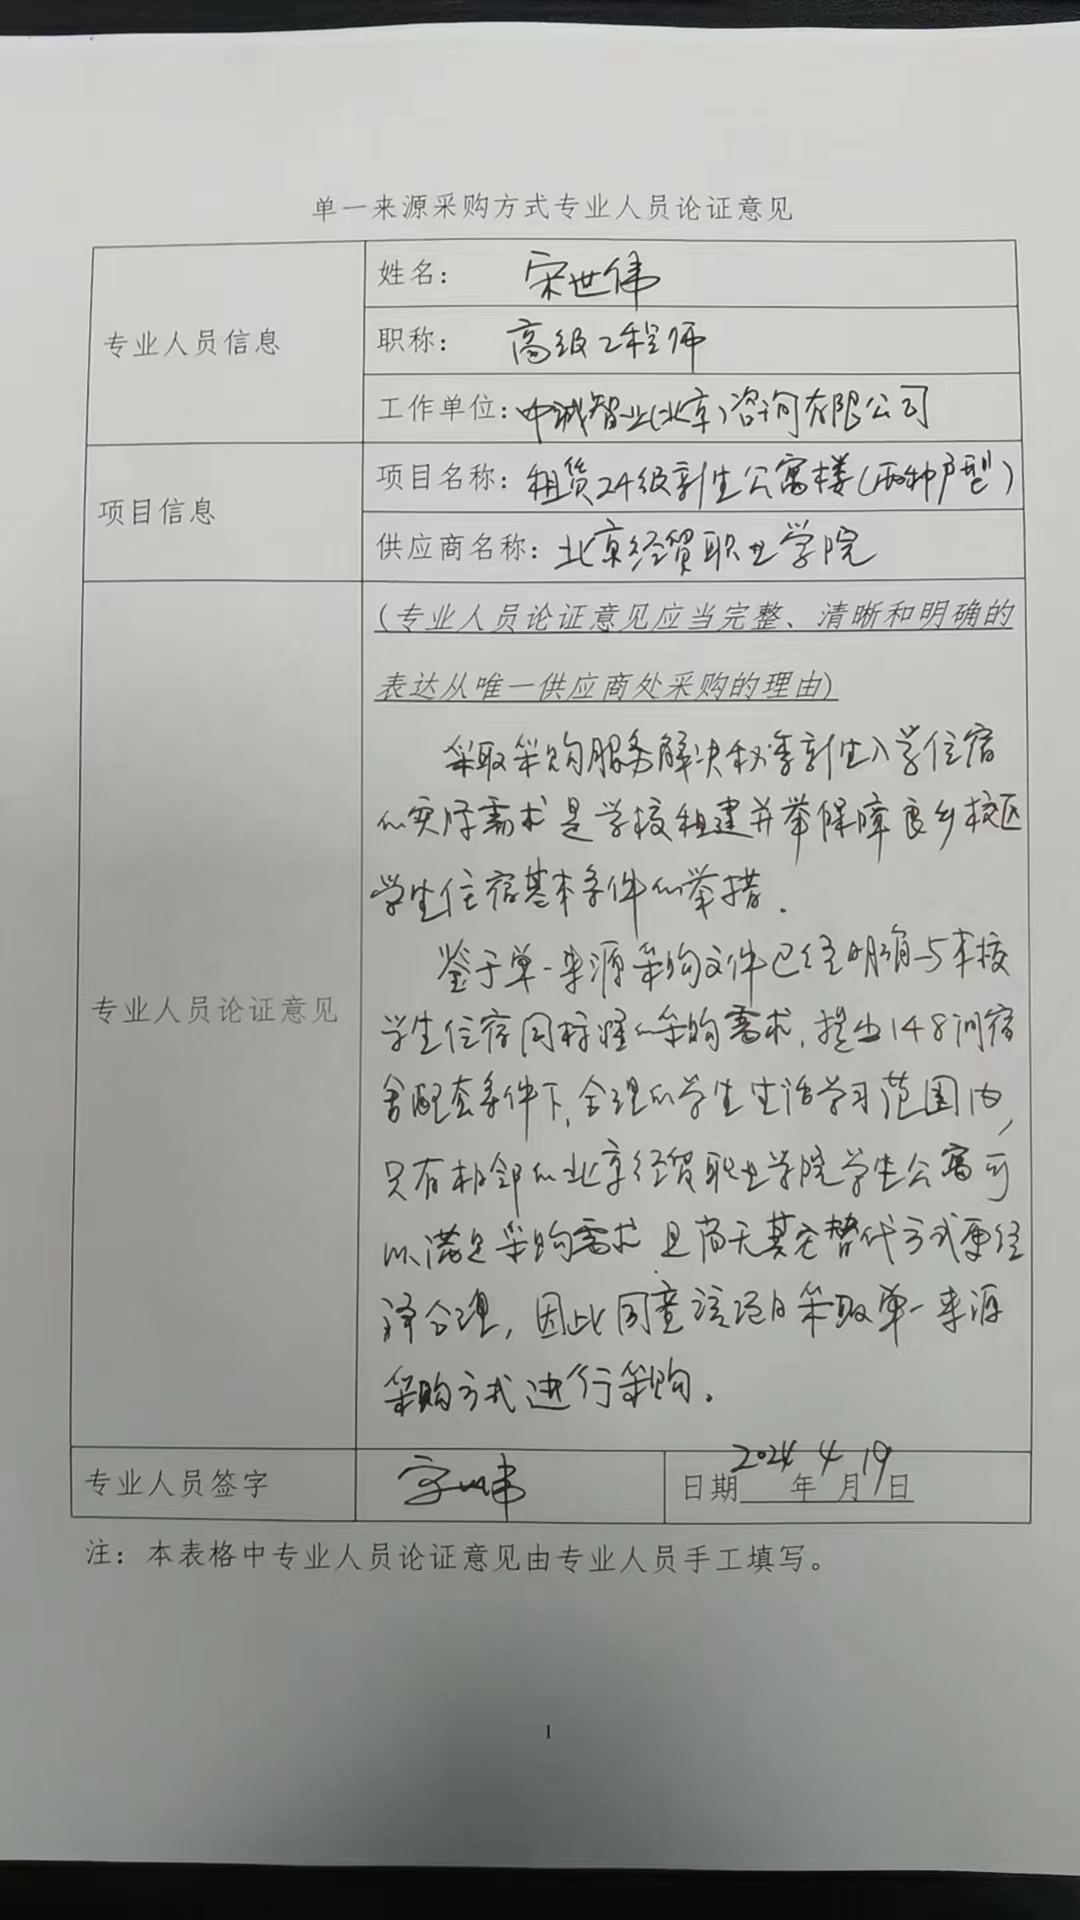 单一来源采购方式专业人员论证意见
专业人员信息
姓名： 宋世伟
职称： 高级工程师
工作单位：中诚智业(北京)咨询有限公司
项目信息
项目名称：租赁24级新生公寓楼(两种户型)
供应商名称：北京经贸职业学院
专业人员论证意见
(专业人员论证意见应当完整、清晰和明确的
表达从唯一供应商处采购的理由)
采取采购服务解决秋季新生入学住宿
的实际需求是学校租建并举保障良乡校区
学生住宿基本条件的举措.
鉴于单一来源采购文件已经明确与本校
学生住宿同标准的采购需求,提出148间宿
舍配套条件下,合理的学生生活学习范围内,
只有相邻的北京经贸职业学院学生公寓可
以满足采购需求 且尚无其它替代方式更经
济合理,因此同意该项目采取单一来源
采购方式进行采购.
专业人员签字
日期 2024年4月19日
注：本表格中专业人员论证意见由专业人员手工填写。
1